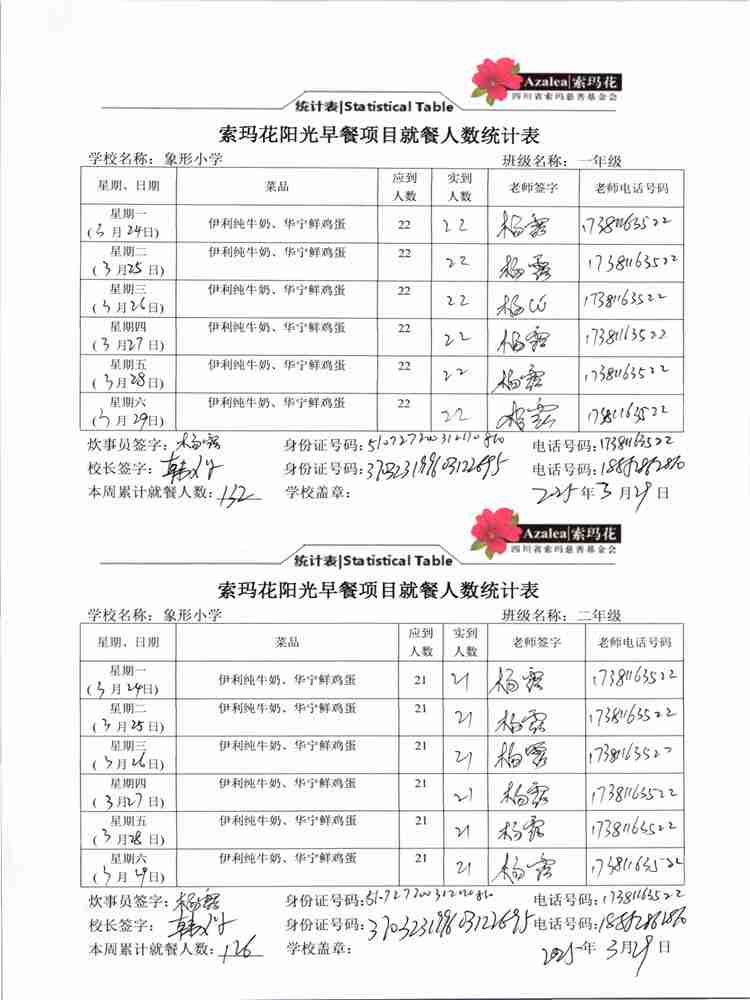 Azalea|索玛花
四川省索玛慈善基金会
统计表|Statistical Table
索玛花阳光早餐项目就餐人数统计表
学校名称：象形小学 班级名称：一年级
星期、日期 菜品 应到人数 实到人数 老师签字 老师电话号码
星期一 (3月24日) 伊利纯牛奶、华宁鲜鸡蛋 22 22 杨露 17381163522
星期二 (3月25日) 伊利纯牛奶、华宁鲜鸡蛋 22 22 杨露 17381163522
星期三 (3月26日) 伊利纯牛奶、华宁鲜鸡蛋 22 22 杨 17381163522
星期四 (3月27日) 伊利纯牛奶、华宁鲜鸡蛋 22 22 杨露 17381163522
星期五 (3月28日) 伊利纯牛奶、华宁鲜鸡蛋 22 22 杨露 17381163522
星期六 (3月29日) 伊利纯牛奶、华宁鲜鸡蛋 22 22 杨露 17381163522
炊事员签字：杨露 身份证号码: 电话号码:17381163522
校长签字：韩 身份证号码: 电话号码:
本周累计就餐人数：132 学校盖章： 2025年3月29日
Azalea|索玛花
四川省索玛慈善基金会
统计表|Statistical Table
索玛花阳光早餐项目就餐人数统计表
学校名称：象形小学 班级名称：二年级
星期、日期 菜品 应到人数 实到人数 老师签字 老师电话号码
星期一 (3月24日) 伊利纯牛奶、华宁鲜鸡蛋 21 21 杨露 17381163522
星期二 (3月25日) 伊利纯牛奶、华宁鲜鸡蛋 21 21 杨露 17381163522
星期三 (3月26日) 伊利纯牛奶、华宁鲜鸡蛋 21 21 杨露 17381163522
星期四 (3月27日) 伊利纯牛奶、华宁鲜鸡蛋 21 21 杨露 17381163522
星期五 (3月28日) 伊利纯牛奶、华宁鲜鸡蛋 21 21 杨露 17381163522
星期六 (3月29日) 伊利纯牛奶、华宁鲜鸡蛋 21 21 杨露 17381163522
炊事员签字：杨露 身份证号码: 电话号码:17381163522
校长签字：韩 身份证号码: 电话号码:
本周累计就餐人数：126 学校盖章： 2025年3月29日